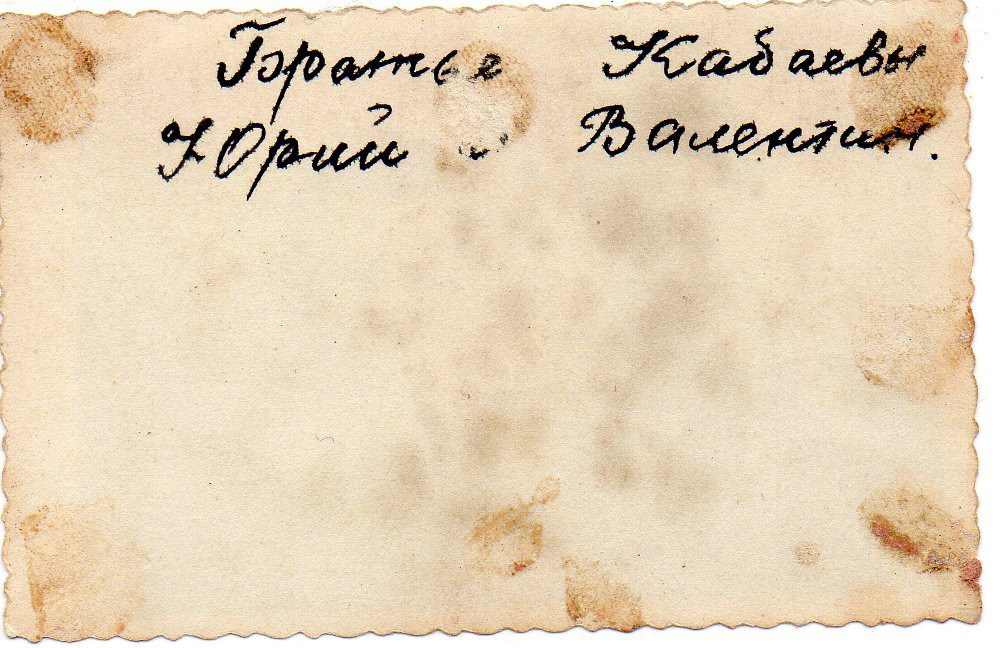 Братье Кабаевы
Юрий и Валентин.